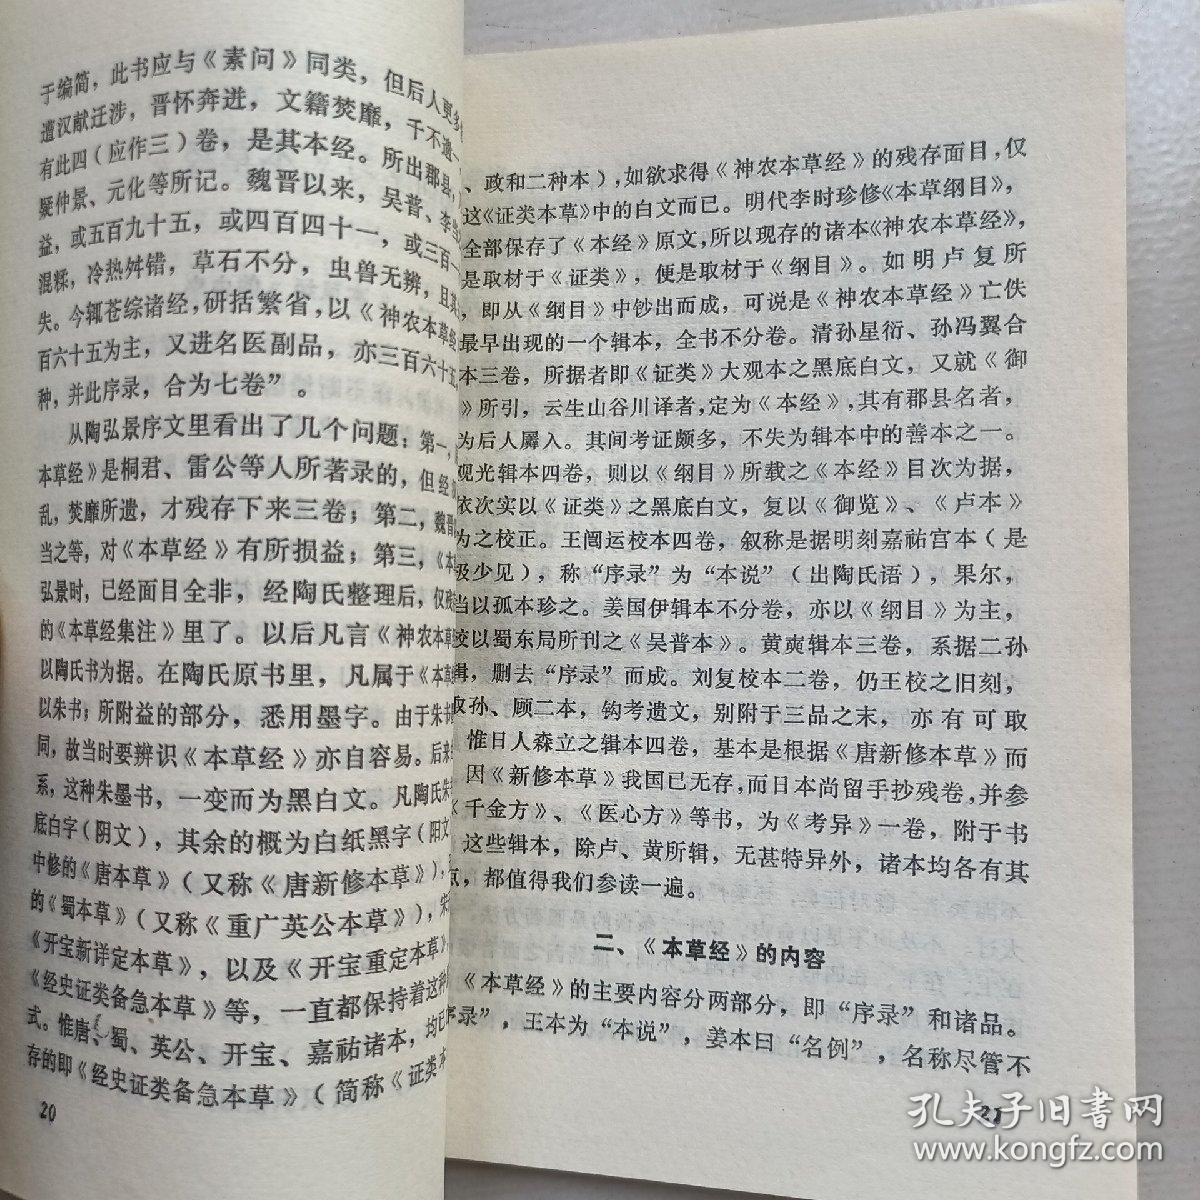 于编简，此书应与《素问》同类，但后人更多
遭汉献迁涉，晋怀奔进，文籍焚靡，千不遗一
有此四（应作三）卷，是其本经。所出郡县，
疑仲景、元化等所记。魏晋以来，吴普、李当
益，或五百九十五，或四百四十一，或三百一
混糅，冷热舛错，草石不分，虫兽无辨，且其
失。今辄苍综诸经，研括繁省，以《神农本草经
百六十五为主，又进名医副品，亦三百六十五
种，并此序录，合为七卷”。
从陶弘景序文里看出了几个问题：第一，
本草经》是桐君、雷公等人所著录的，但经
乱，焚靡所遗，才残存下来三卷；第二，魏晋
当之等，对《本草经》有所损益；第三，《本
弘景时，已经面目全非，经陶氏整理后，仅残
的《本草经集注》里了。以后凡言《神农本草
以陶氏书为据。在陶氏原书里，凡属于《本草
以朱书；所附益的部分，悉用墨字。由于朱书
同，故当时要辨识《本草经》亦自容易。后来
系，这种朱墨书，一变而为黑白文。凡陶氏朱
底白字（阴文），其余的概为白纸黑字（阳文
中修的《唐本草》（又称《唐新修本草》），
的《蜀本草》（又称《重广英公本草》），宋
《开宝新详定本草》，以及《开宝重定本草》
《经史证类备急本草》等，一直都保持着这种
式。惟唐、蜀、英公、开宝、嘉祐诸本，均已
存的即《经史证类备急本草》（简称《证类本
20
、政和二种本），如欲求得《神农本草经》的残存面目，仅
这《证类本草》中的白文而已。明代李时珍修《本草纲目》，
全部保存了《本经》原文，所以现存的诸本《神农本草经》，
是取材于《证类》，便是取材于《纲目》。如明卢复所
，即从《纲目》中钞出而成，可说是《神农本草经》亡佚
最早出现的一个辑本，全书不分卷。清孙星衍、孙冯翼合
本三卷，所据者即《证类》大观本之黑底白文，又就《御
》所引，云生山谷川译者，定为《本经》，其有郡县名者，
为后人羼入。其间考证颇多，不失为辑本中的善本之一。
观光辑本四卷，则以《纲目》所载之《本经》目次为据，
依次实以《证类》之黑底白文，复以《御览》、《卢本》
为之校正。王闿运校本四卷，叙称是据明刻嘉祐宫本（是
极少见），称“序录”为“本说”（出陶氏语），果尔，
当以孤本珍之。姜国伊辑本不分卷，亦以《纲目》为主，
校以蜀东局所刊之《吴普本》。黄奭辑本三卷，系据二孙
辑，删去“序录”而成。刘复校本二卷，仍王校之旧刻，
取孙、顾二本，钩考遗文，别附于三品之末，亦有可取
惟日人森立之辑本四卷，基本是根据《唐新修本草》而
因《新修本草》我国已无存，而日本尚留手抄残卷，并参
《千金方》、《医心方》等书，为《考异》一卷，附于书
这些辑本，除卢、黄所辑，无甚特异外，诸本均各有其
点，都值得我们参读一遍。
二、《本草经》的内容
《本草经》的主要内容分两部分，即“序录”和诸品。
序录”，王本为“本说”，姜本曰“名例”，名称尽管不
21
孔夫子旧书网
www.kongfz.com